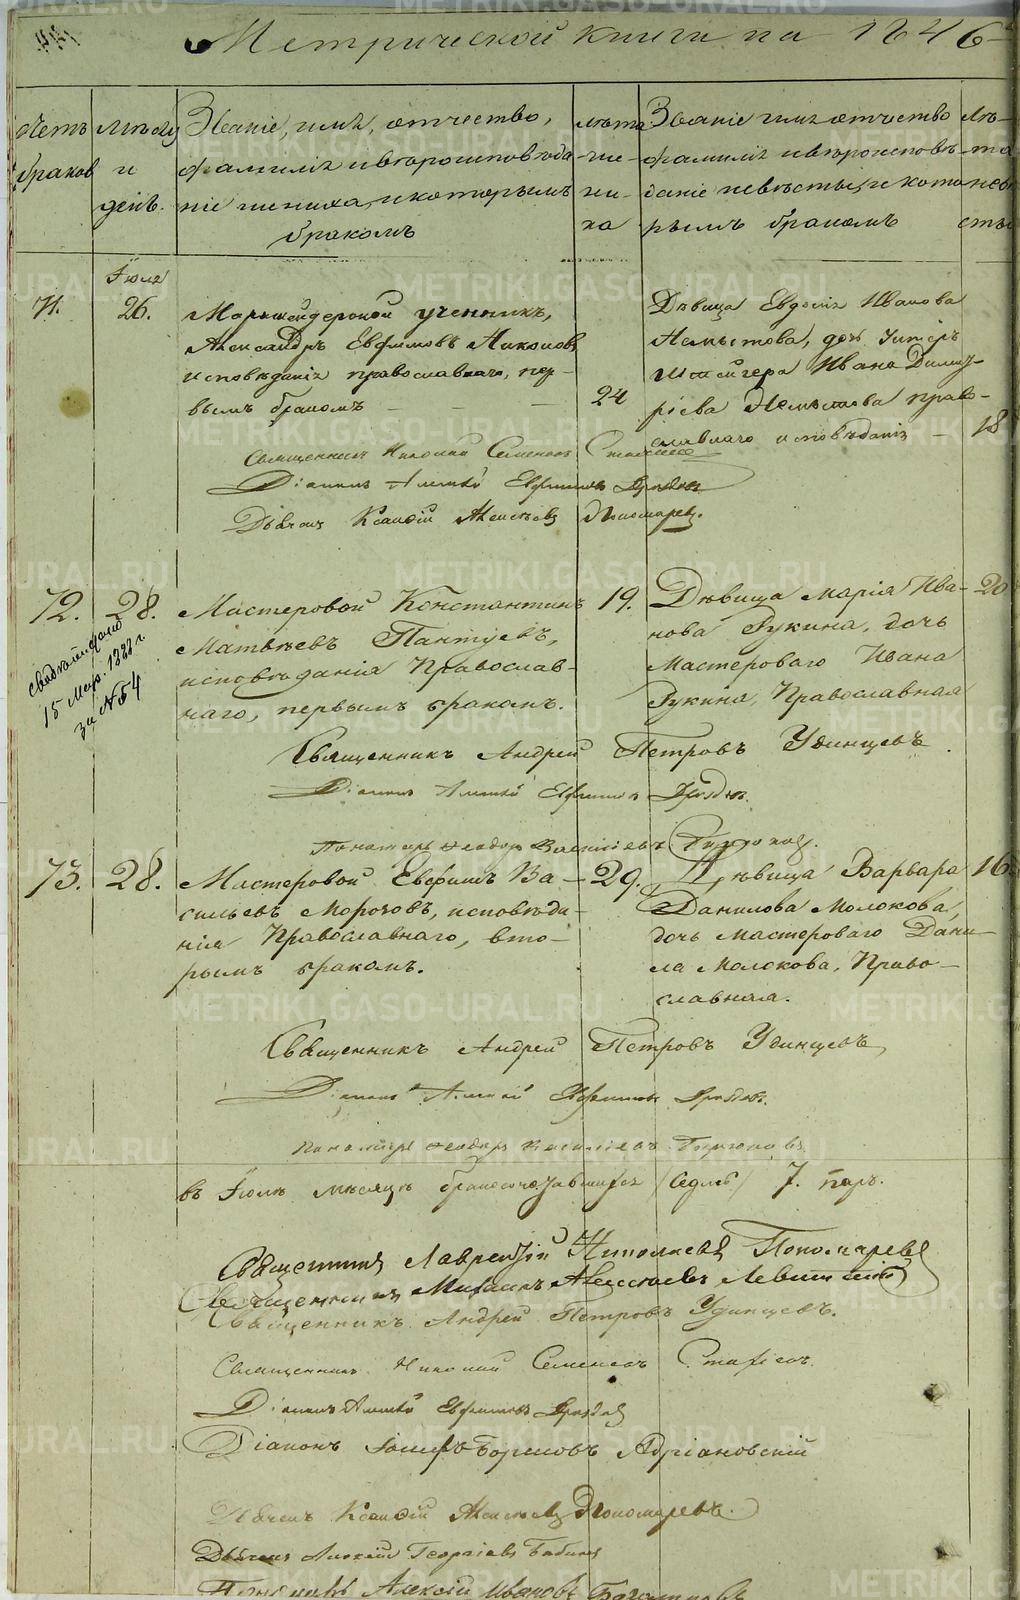 Метрической книги на 1846
Четъ браковъ
Мѣсяцъ и день.
Званіе, имя, отчество, фамилія и вѣроисповѣданіе жениха, и которымъ бракомъ
Лѣта жениха
Званіе имя отчество фамилія и вѣроисповѣданіе невѣсты, и которымъ бракомъ
Лѣта невѣсты
Іюля
71.
26.
Маркшейдерской ученикъ,
Александръ Евфимовъ Никоновъ
исповѣданія православнаго, пер-
вымъ бракомъ
24
Дѣвица Евдокія Иванова
дочь Унтеръ
Штейгера Ивана Димит-
ріева право-
славнаго исповѣданія
18
Священникъ Николай Семеновъ
Діаконъ Алексѣй Евфимовъ
Дьячекъ Алексѣевъ Пономаревъ.
72.
28.
Мастеровой Константинъ
Матвѣевъ Пантуевъ,
исповѣданія Православ-
наго, первымъ бракомъ.
19.
Дѣвица Марія Ива-
нова Рукина, дочь
Мастероваго Ивана
Рукина, Православная
20
15 Мар. 1888 г.
за № 54
Священникъ Андрей Петровъ Удинцевъ.
Діаконъ Алексѣй Евфимовъ
Пономарь Ѳеодоръ Васильевъ
73.
28.
Мастеровой Евфимъ Ва-
сильевъ Морозовъ, исповѣда-
нія Православнаго, вто-
рымъ бракомъ.
29.
Дѣвица Варвара
Данилова Молокова,
дочь мастероваго Дани-
ла Молокова, Право-
славная.
16.
Священникъ Андрей Петровъ Удинцевъ,
Діаконъ Алексѣй Евфимовъ
Пономарь Ѳеодоръ Васильевъ
въ Іюлѣ мѣсяцѣ бракосочетавшихся (седмь) 7. паръ.
Священникъ Лаврентій Николаевъ Пономаревъ
Священникъ Михаилъ Алексѣевъ Левитскій
Священникъ Андрей Петровъ Удинцевъ.
Священникъ Николай Семеновъ
Діаконъ Алексѣй Евфимовъ
Діаконъ Іосифъ Борисовъ Адріановскій
Дьячекъ Алексѣевъ Пономаревъ.
Дьячекъ Алексѣй Георгіевъ
Пономарь Алексѣй Ивановъ
METRIKI.GASO-URAL.RU